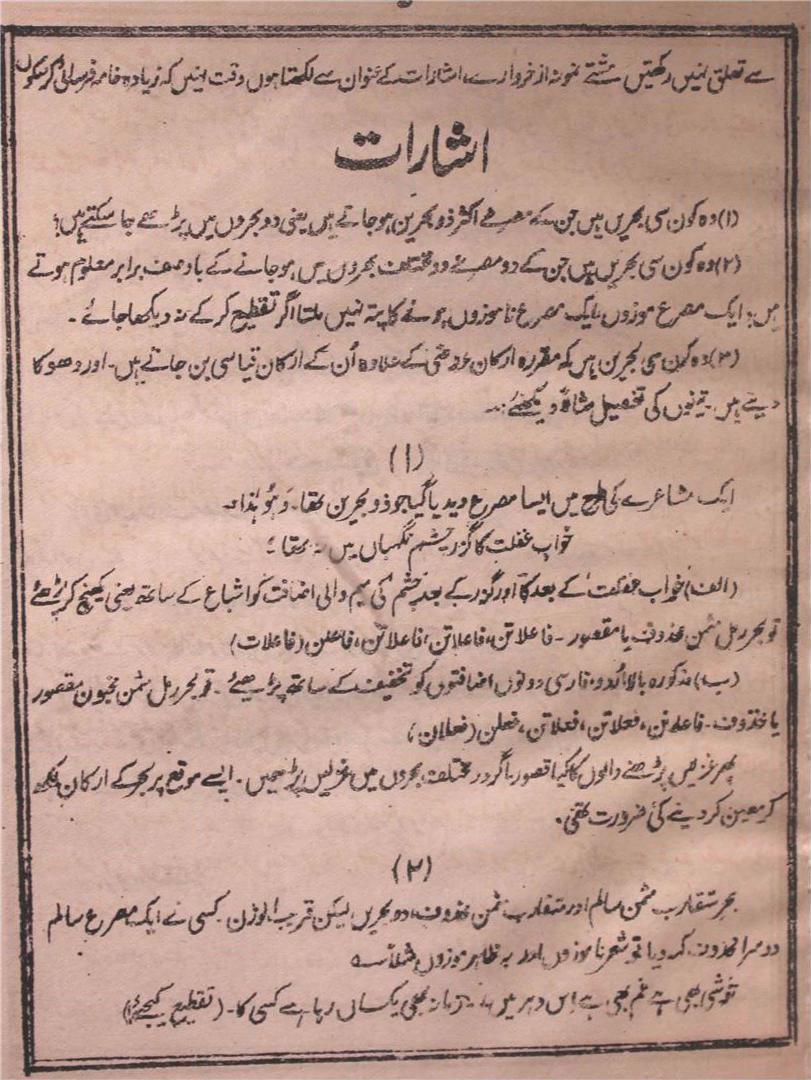 سے تعلق نہیں رکھتیں مشتے نمونہ از خروارے، اشارات کے عنوان سے لکھتا ہوں وقت نہیں کہ زیادہ خامہ فرسائی کر سکوں
اشارات
(۱) وہ کون سی بحریں ہیں جن کے مصرعے اکثر ذو بحرین ہو جاتے ہیں یعنی دو بحروں میں پڑھے جا سکتے ہیں؟
(۲) وہ کون سی بحریں ہیں جن کے دو مصرعے دو مختلف بحروں میں ہو جانے کے باوصف برابر معلوم ہوتے
ہیں؛ ایک مصرع موزوں، ایک مصرع ناموزوں ہونے کا پتہ نہیں ملتا اگر تقطیع کر کے نہ دیکھا جائے۔
(۳) وہ کون سی بحریں ہیں کہ مقررہ ارکان عروضی کے علاوہ اُن کے ارکان قیاسی بن جاتے ہیں۔ اور دھوکا
دیتے ہیں۔ تینوں کی تفصیل مثلاً دیکھئے:۔
(۱)
ایک مشاعرے کی طرح میں ایسا مصرع دیدیا گیا جو ذو بحرین تھا۔ وَہُوَ ہٰذا۔
خواب غفلت کا گزر چشم نگہباں میں نہ تھا؛
(الف) خواب غفلت کے بعد کا اور گزر کے بعد چشم کی میم والی اضافت کو اشباع کے ساتھ یعنی کھینچ کر پڑھئے
تو بحر رمل مثمن محذوف یا مقصور۔ فاعلاتن، فاعلاتن، فاعلاتن، فاعلن (فاعلات)
(ب) مذکورہ بالا اُردو، فارسی دونوں اضافتوں کو تخفیف کے ساتھ پڑھیئے۔ تو بحر رمل مثمن مخبون مقصور
یا محذوف۔ فاعلاتن، فعلاتن، فعلاتن، فعلن (فعلان)
پھر غزلیں پڑھنے والوں کا کیا قصور، اگر دو مختلف بحروں میں غزلیں پڑھیں۔ ایسے موقع پر بحر کے ارکان لکھ
کر معین کر دینے کی ضرورت تھی۔
(۲)
بحر متقارب مثمن سالم اور متقارب مثمن محذوف، دو بحریں لیکن قریب الوزن۔ کسی نے ایک مصرع سالم
دوسرا محذوف کہہ دیا تو شعر ناموزوں اور بہ ظاہر موزوں مثلاً ؎
خوشی بھی ہے غم بھی ہے اِس دہر میں، زمانہ بھی یکساں رہا ہے کسی کا۔ (تقطیع کیجئے)